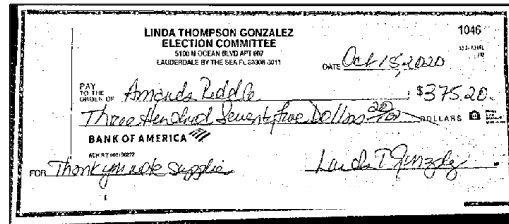 LINDA THOMPSON GONZALEZ 1046
ELECTION COMMITTEE
5100 N OCEAN BLVD APT 607
LAUDERDALE BY THE SEA FL 33308-3011
DATE Oct 15, 2020
PAY
TO THE
ORDER OF Amanda Riddle $375.20
Three Hundred Seventy Five Dollars 20/100 DOLLARS
BANK OF AMERICA
FOR Thank you note supplies